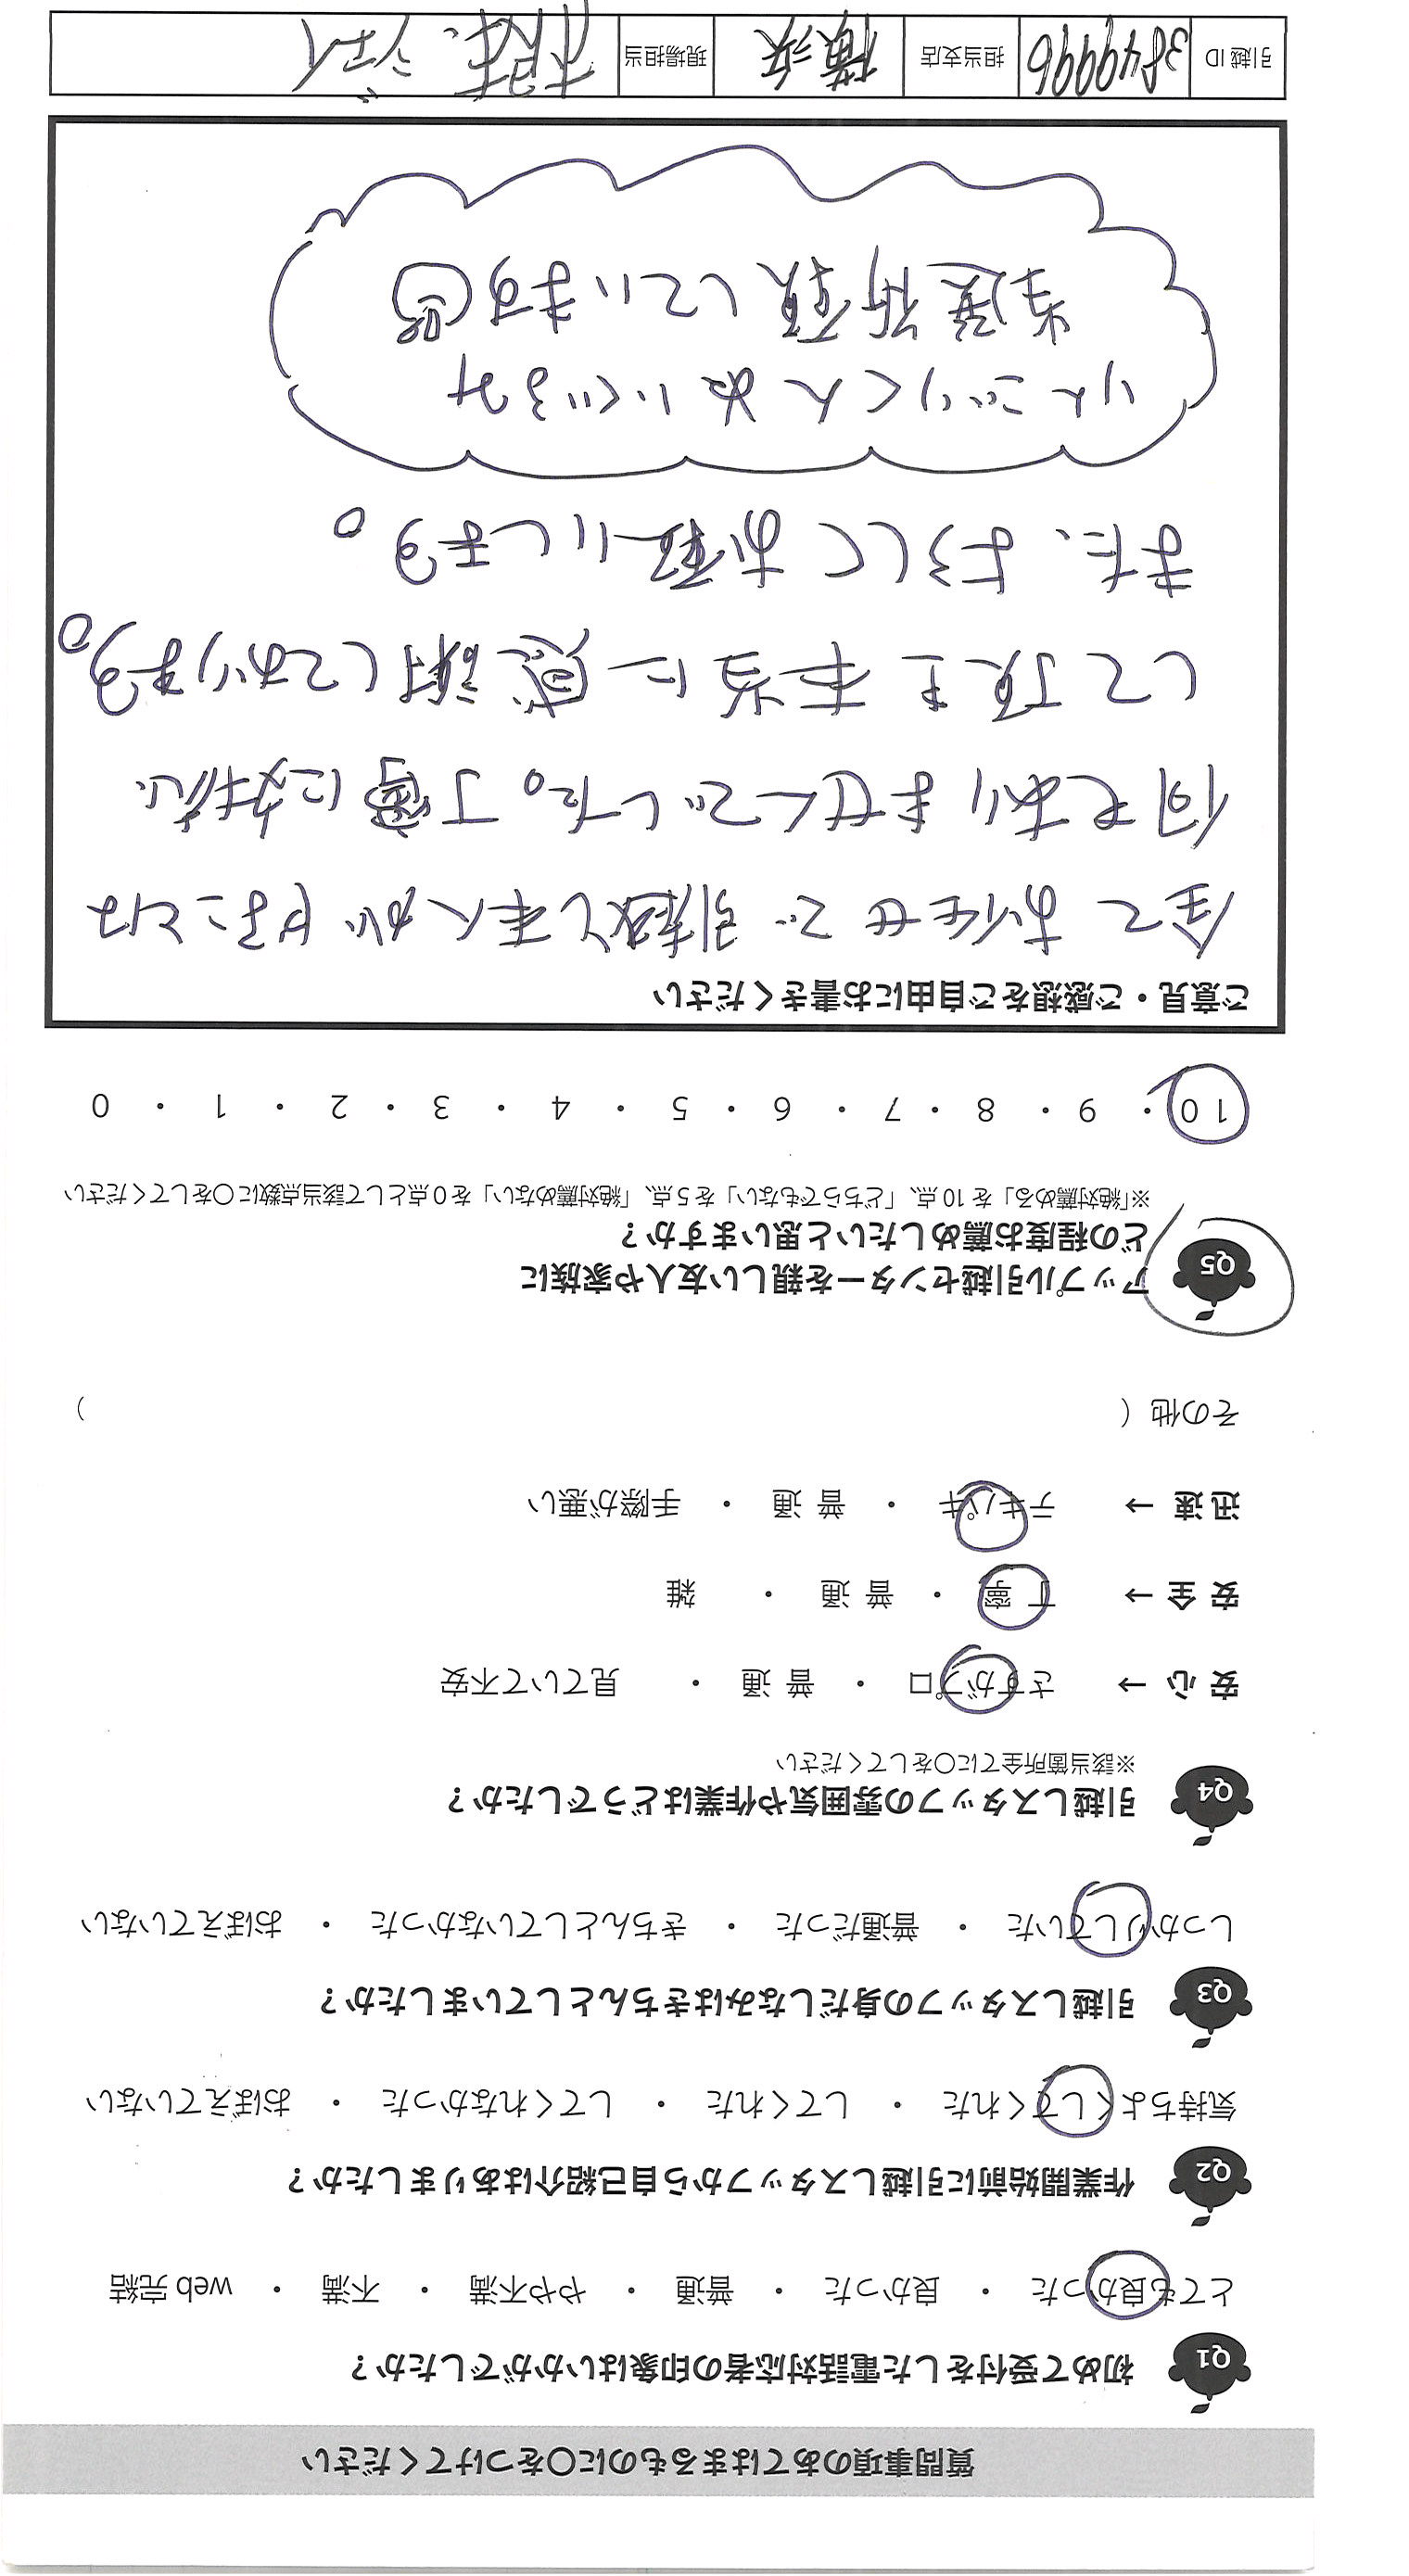 質問事項のあてはまるものに○をつけてください
Q1 初めて受付をした電話対応者の印象はいかがでしたか？
とても良かった ・ 良かった ・ 普通 ・ やや不満 ・ 不満 ・ web 完結
Q2 作業開始前に引越しスタッフから自己紹介はありましたか？
気持ちよくしてくれた ・ してくれた ・ してくれなかった ・ おぼえていない
Q3 引越しスタッフの身だしなみはきちんとしていましたか？
しっかりしていた ・ 普通だった ・ きちんとしていなかった ・ おぼえていない
Q4 引越しスタッフの雰囲気や作業はどうでしたか？
※該当箇所全てに○をしてください
安 心 → さすがプロ ・ 普 通 ・ 見ていて不安
安 全 → 丁 寧 ・ 普 通 ・ 雑
迅 速 → テキパキ ・ 普 通 ・ 手際が悪い
その他（ ）
Q5 アップル引越センターを親しい友人や家族に
どの程度お薦めしたいと思いますか？
※「絶対薦める」を 10 点、「どちらでもない」を 5 点、「絶対薦めない」を 0 点として該当点数に○をしてください
10 ・ 9 ・ 8 ・ 7 ・ 6 ・ 5 ・ 4 ・ 3 ・ 2 ・ 1 ・ 0
ご意見・ご感想をご自由にお書きください
全て お任せで 引越し本人が やることは
何もありませんでした。丁寧に対応
して頂き 本当に 感謝しております。
また、よろしく お願いします。
りんごりくん ぬいぐるみ
是
引越 ID 3849996 担当支店 横浜 現場担当